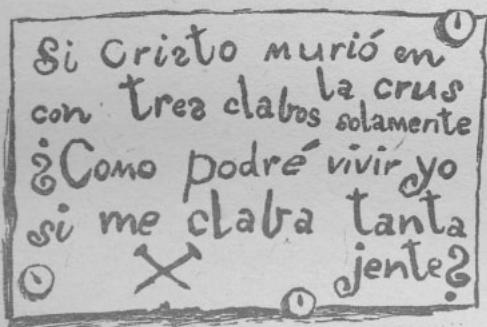 Si Cristo murió en
la crus
con tres clabos solamente
¿Como podré vivir yo
si me claba tanta
jente?